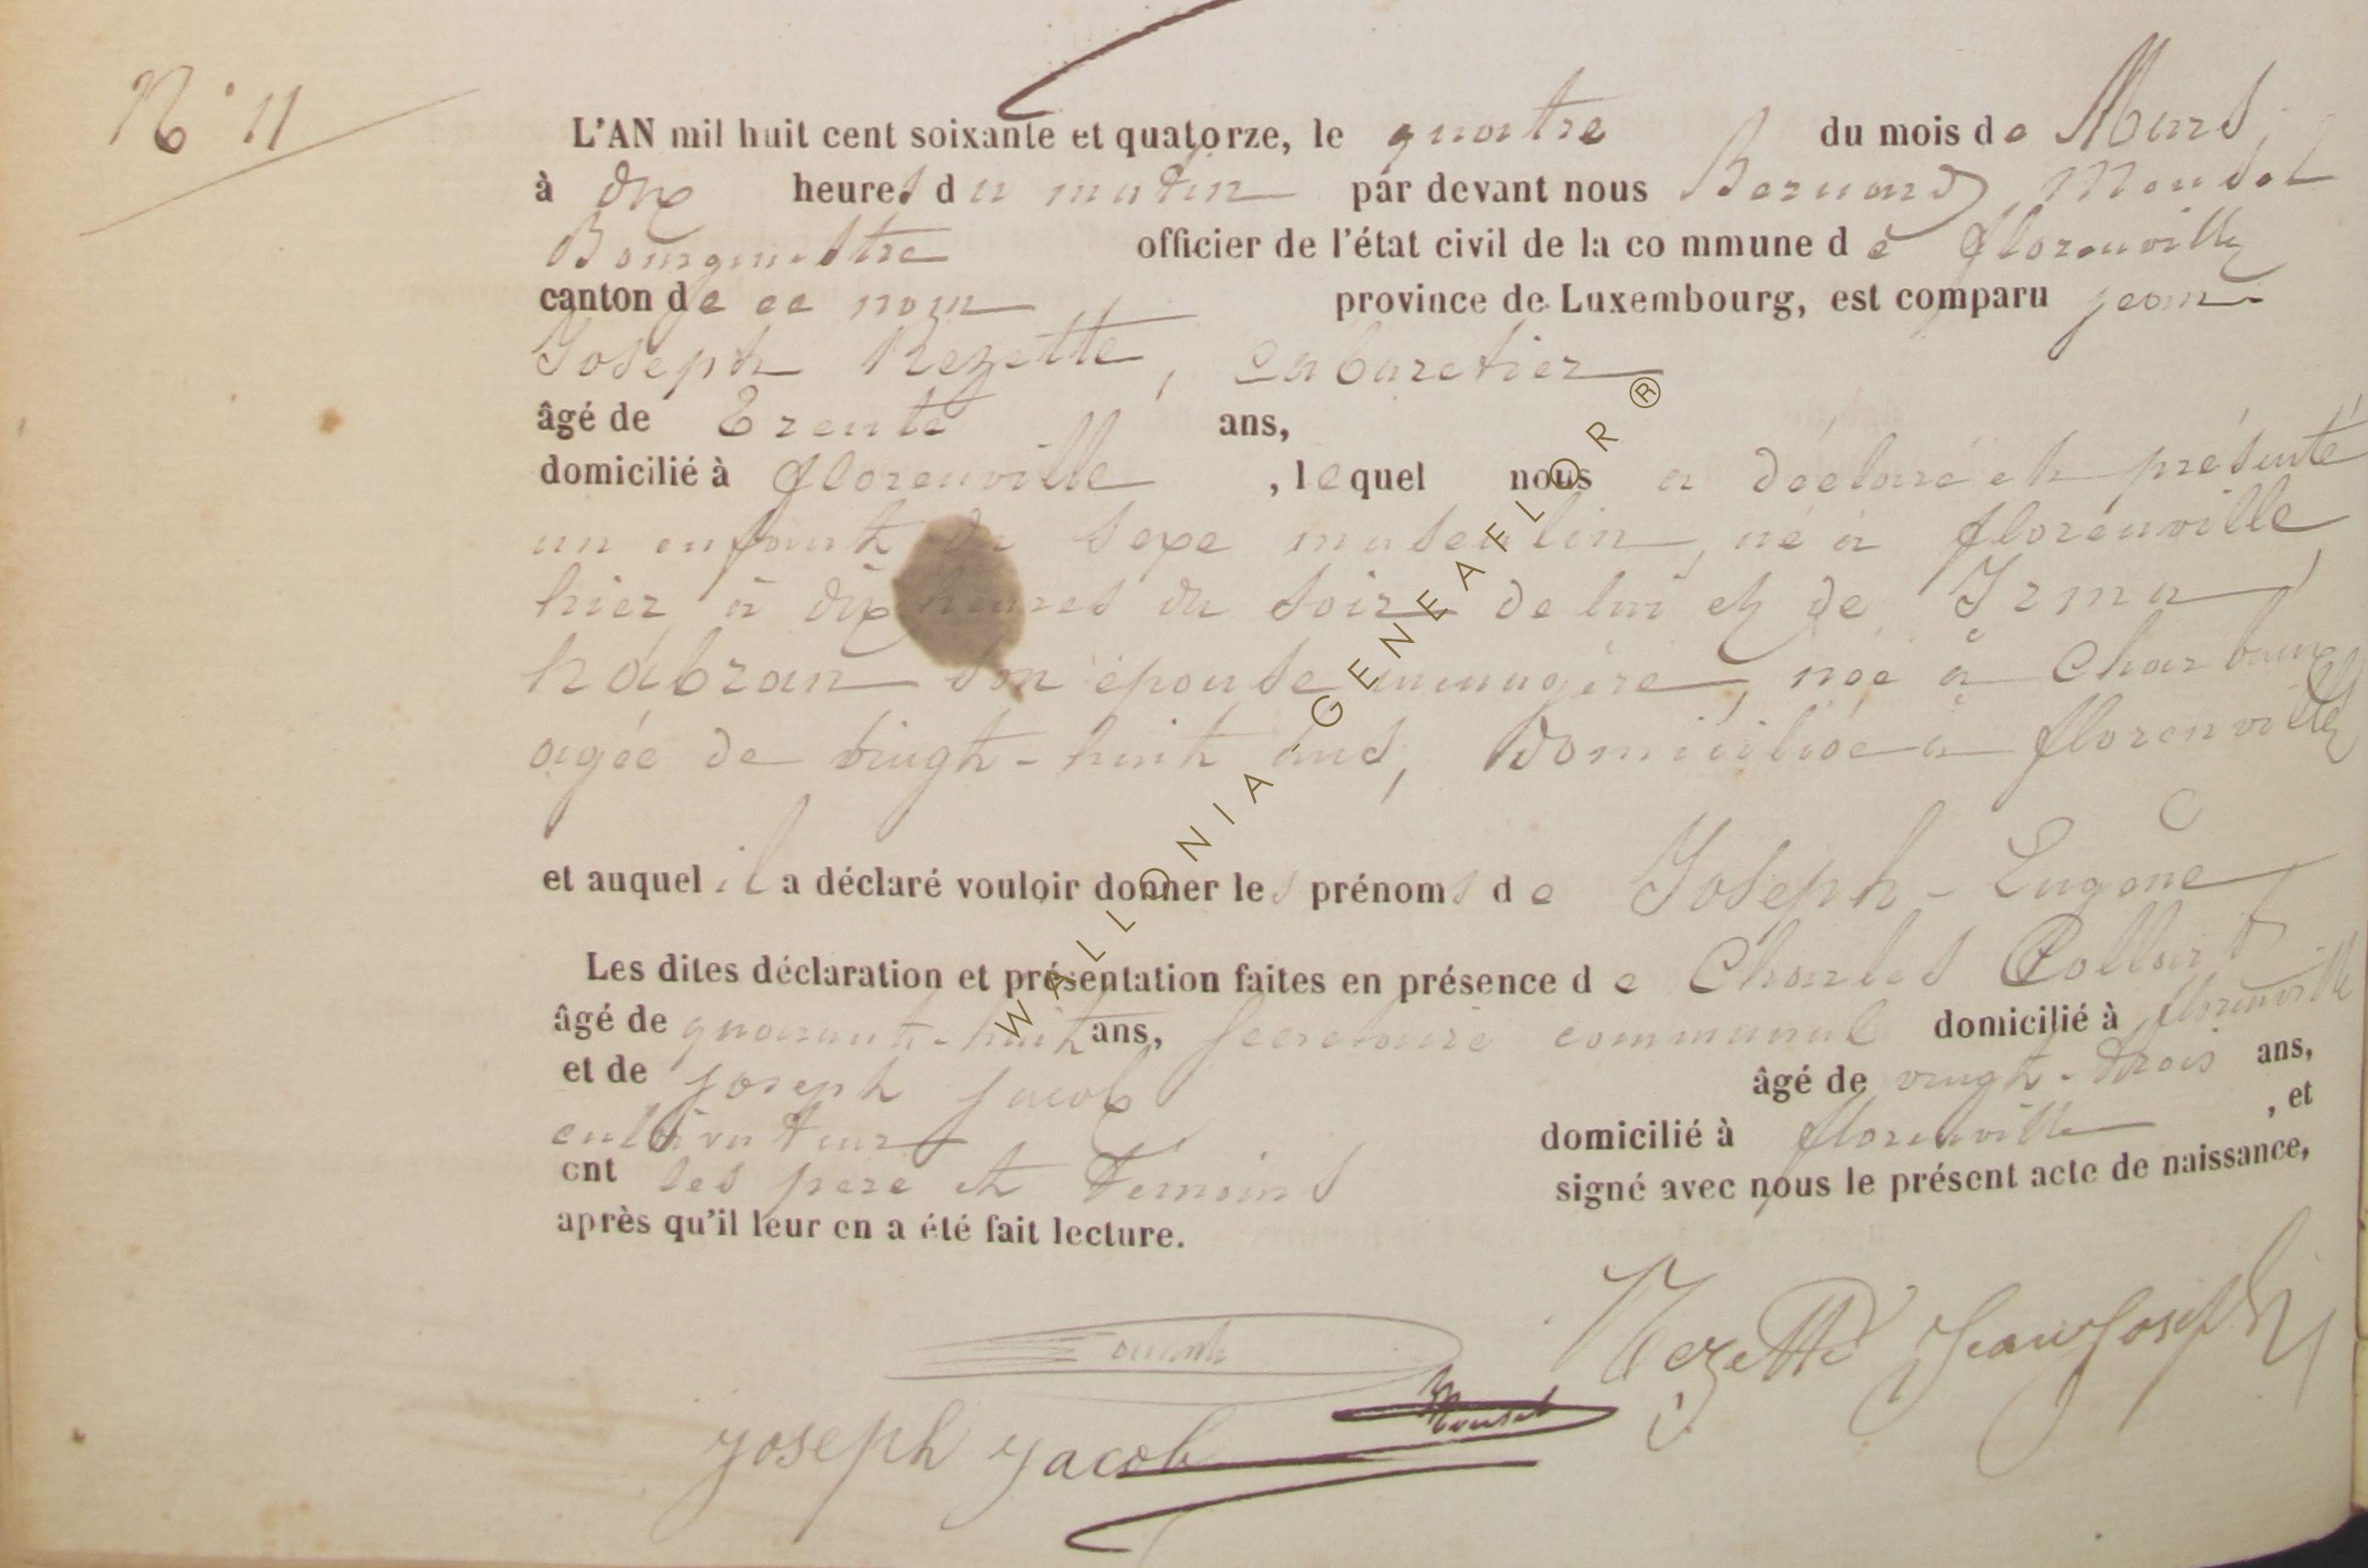 N° 11
L'AN mil huit cent soixante et quatorze, le quatre du mois de Mars,
à dix heures du matin par devant nous Bernard Mousel
Bourgmestre officier de l'état civil de la commune de florenville
canton de ce nom province de Luxembourg, est comparu jean
Joseph Rezette, cabaretier
âgé de Trente ans,
domicilié à florenville, lequel nous a déclaré et présenté
un enfant du sexe masculin, né à florenville
hier à dix heures du soir de lui et de Irma
habran son épouse ménagère, née à
agée de vingt-huit ans, domiciliée à florenville
et auquel il a déclaré vouloir donner les prénoms de Joseph-Eugène
Les dites déclaration et présentation faites en présence de Charles Collard
âgé de quarante-huit ans, secretaire communal domicilié à florenville
et de joseph jacob âgé de vingt-trois ans,
cultivateur domicilié à florenville, et
ont les père et témoins signé avec nous le présent acte de naissance,
après qu'il leur en a été fait lecture.
Rezette Jean Joseph
Mousel
joseph jacob
WALLONIA - GENEAFLOR ®